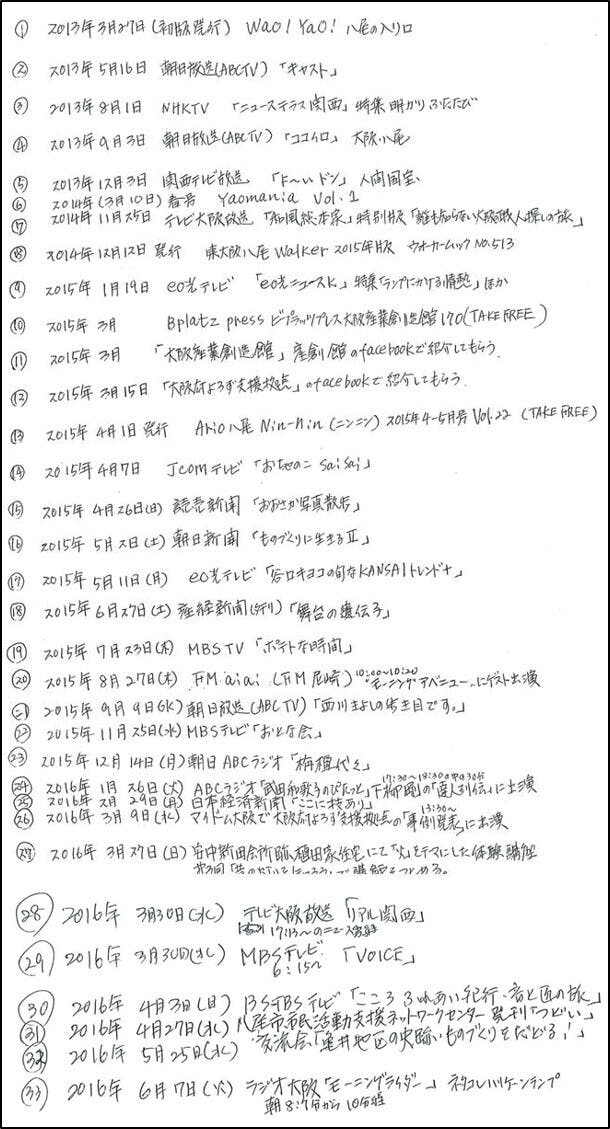 ① 2013年3月27日(初版発行) Wao! Yao! 八尾の入り口
② 2013年5月16日 朝日放送(ABCTV) 「キャスト」
③ 2013年8月1日 NHKTV 「ニューステラス関西」特集 明かりふたたび
④ 2013年9月3日 朝日放送(ABCTV) 「ココイロ」 大阪八尾
⑤ 2013年12月3日 関西テレビ放送 「よ〜いドン」 人間国宝
⑥ 2014年(3月10日) 春号 Yaomania Vol.1
⑦ 2014年11月25日 テレビ大阪放送 「和風総本家」特別版「誰も知らない大阪職人探しの旅」
⑧ 2014年12月12日 発行 東大阪八尾Walker 2015年版 ウォーカームックNo.513
⑨ 2015年1月19日 eo光テレビ 「eo光ニュースK」特集「ランプにかける情熱」ほか
⑩ 2015年3月 Bplatz press ビープラッツプレス 大阪産業創造館 170(TAKE FREE)
⑪ 2015年3月 「大阪産業創造館」産創館のfacebookで紹介してもらう.
⑫ 2015年3月15日 「大阪府よろず支援拠点」のfacebookで紹介してもらう.
⑬ 2015年4月1日 発行 Ario八尾 Nin-nin (ニンニン) 2015年4-5月号 Vol.22 (TAKE FREE)
⑭ 2015年4月7日 Jcomテレビ 「おちゃのこ saisai」
⑮ 2015年4月26日(日) 読売新聞 「おおさか写真散歩」
⑯ 2015年5月2日(土) 朝日新聞 「ものづくりに生きるⅡ」
⑰ 2015年5月11日(月) eo光テレビ 「谷口キヨコの旬なKANSAIトレンドナ」
⑱ 2015年6月27日(土) 産経新聞(夕刊) 「舞台の遺伝子」
⑲ 2015年7月23日(木) MBSTV 「ポテトな時間」
⑳ 2015年8月27日(木) FM aiai (FM尼崎) 10:00〜10:20 "モーニングアベニュー"にゲスト出演
㉑ 2015年9月9日(水) 朝日放送(ABCTV) 「西川きよしの歩き目です。」
㉒ 2015年11月25日(水) MBSテレビ「おとな会」
㉓ 2015年12月14日(月) 朝日ABCラジオ「栴檀代々」
㉔ 2016年1月26日(火) ABCラジオ「武田和歌子のぴたっと」下柳剛の「達人列伝」に出演 17:30〜18:30の中の30分
㉕ 2016年2月29日(月) 日本経済新聞「ここに技あり」
㉖ 2016年3月9日(水) マイドーム大阪で大阪府よろず支援拠点の「事例発表」に出演 13:30〜
㉗ 2016年3月27日(日) 安中新田会所跡旧植田家住宅にて「火」をテーマにした体験講座
第3回「昔の灯りを
㉘ 2016年3月30日(水) テレビ大阪放送「リアル関西」
17:13〜のニュース
㉙ 2016年3月30日(水) MBSテレビ 「VOICE」
6:15〜
㉚ 2016年4月3日(日) BS-TBSテレビ「こころふれあい紀行・音と匠の旅」
㉛ 2016年4月27日(水) 八尾市市民活動支援ネットワークセンター発刊「つどい」
㉜ 2016年5月25日(水) 交流会「亀井地区の史跡・ものづくりをたどる!」
㉝ 2016年6月7日(火) ラジオ大阪「モーニングライダー」 ネタコレハリケーンランプ
朝8:7分から10分程